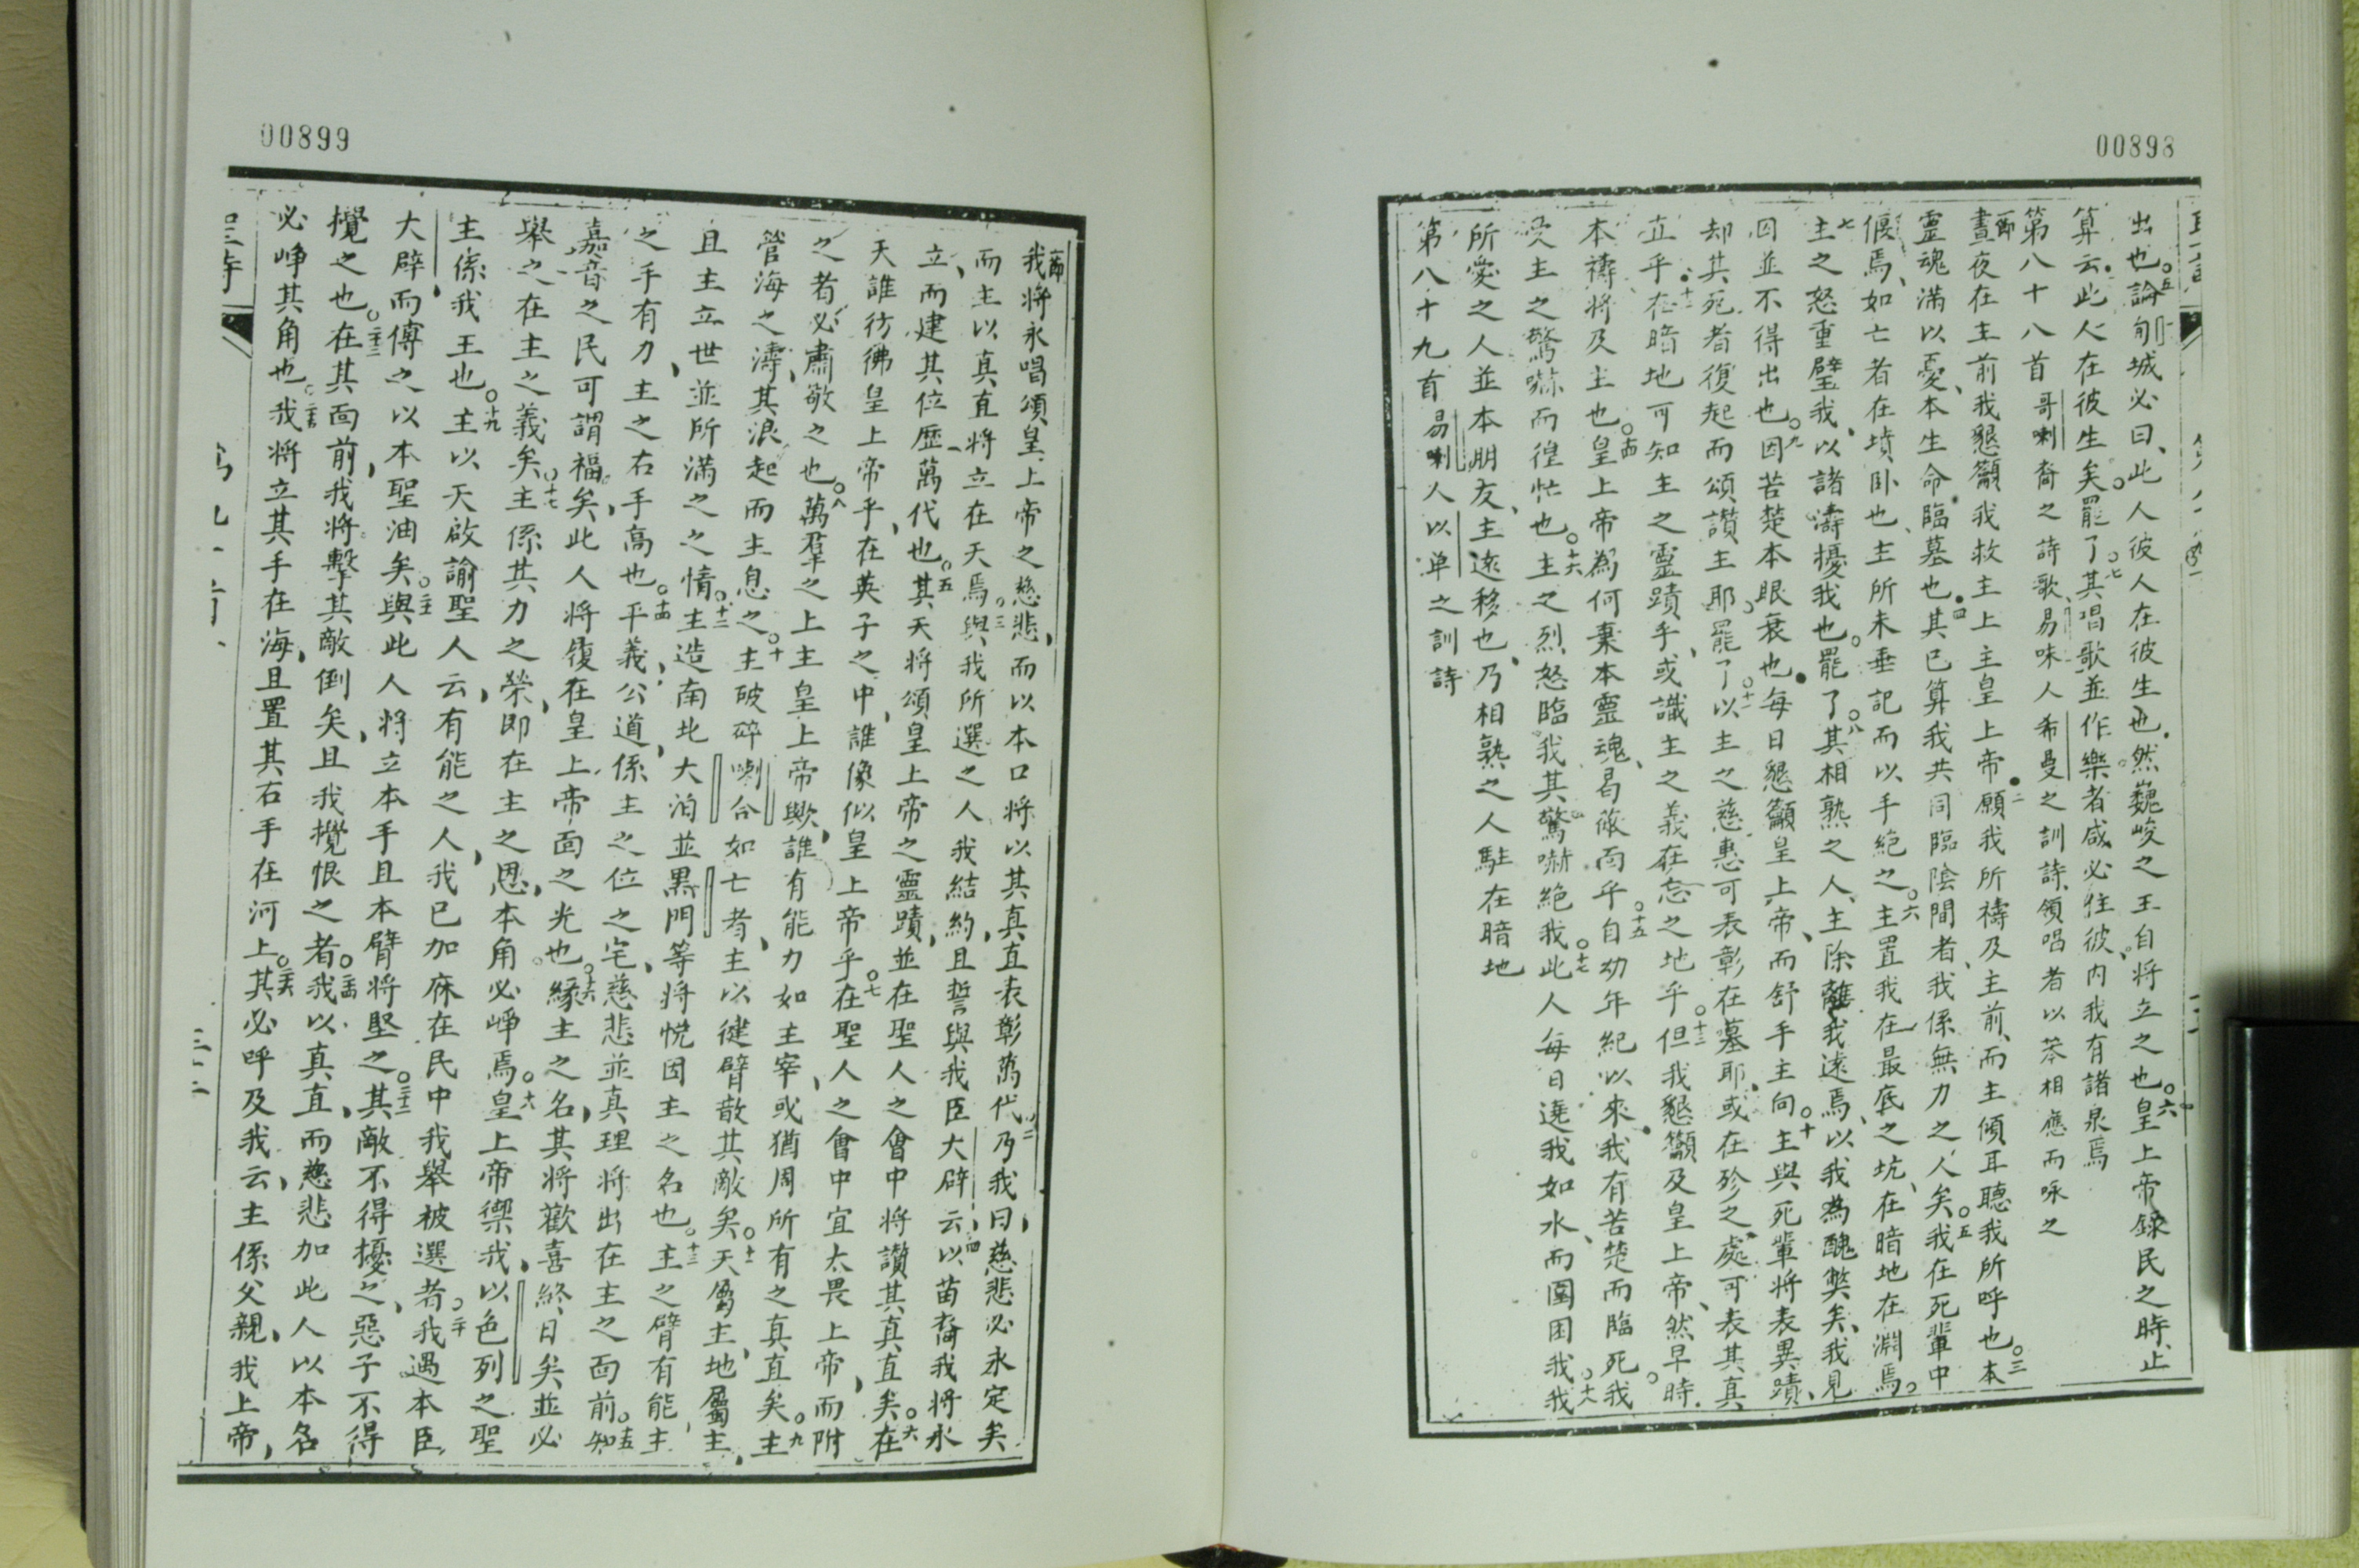 00898
出也。五論旬城必曰、此人彼人在彼生也、然巍峻之王自將立之也。六皇上帝錄民之時、止
算云、此人在彼生矣。罷了。七其唱歌並作樂者咸必住彼、內我有諸泉焉
第八十八首哥喇裔之詩歌、易味人希曼之訓詩、領唱者以苯相應而咏之
一節晝夜在主前我懇籲我救主上主皇上帝。二願我所禱及主前、而主傾耳聽我所呼也。三本
靈魂滿以憂、本生命臨墓也。四其已算我共同臨陰間者、我係無力之人矣。五我在死輩中
偃焉、如亡者在墳卧也、主所未垂記而以手絕之。六主置我在最底之坑、在暗地在淵焉。
七主之怒重壓我、以諸濤擾我也。罷了。八其相熟之人、主除離我遠焉、以我為醜獘矣、我見
囙並不得出也。九因苦楚本眼衰也、每日懇籲皇上帝、而舒手主向。十主與死輩將表異蹟、
却其死者復起而頌讃主耶。罷了。十一以主之慈惠可表彰在墓耶、或在殄之處可表其真
直乎。十二在暗地可知主之靈蹟乎、或識主之義在忘之地乎。十三但我懇籲及皇上帝、然早時
本禱將及主也。十四皇上帝為何棄本靈魂、曷蔽面乎。十五自幼年紀以來、我有苦楚而臨死。我
受主之驚嚇而徨忙也。十六主之烈怒臨我其驚嚇絕我。十七此人每日遶我如水、而圍困我。十八我
所愛之人並本朋友、主遠移也、乃相熟之人駐在暗地
第八十九首易喇人以单之訓詩
00899
一節我將永唱頌皇上帝之慈悲、而以本口將以其真直表彰萬代。二乃我曰、慈悲必永定矣
而主以真直將立在天焉。三與我所選之人我結約、且誓與我臣大辟云、四以苗裔我將永
立、而建其位歷萬代也。五其天將頌皇上帝之靈蹟、並在聖人之會中將讃其真直矣。六在
天誰彷彿皇上帝乎、在英子之中、誰像似皇上帝乎。七在聖人之會中宜太畏上帝、而附
之者必肅敬之也。八萬羣之上主皇上帝歟、誰有能力如主宰、或猶周所有之真直矣。九主
管海之濤、其浪起而主息之。十主破碎喇合如亡者、主以健臂散其敵矣。十一天屬主、地屬主、
且主立世並所滿之之情。十二主造南北大泊並黒門等將悅因主之名也。十三主之臂有能、主
之手有力、主之右手高也。十四平義、公道、係主之位之宅、慈悲並真理將出在主之面前。十五知
嘉音之民可謂福矣、此人將履在皇上帝面之光也。十六緣主之名、其將歡喜終日矣並必
舉之在主之義矣。十七主係其力之榮、即在主之恩、本角必崢焉。十八皇上帝禦我、以色列之聖
主係我王也。十九主以天啟諭聖人云、有能之人、我已加庥在民中我舉被選者。二十我遇本臣
大辟、而傅之以本聖油矣。二十一與此人將立本手且本臂將堅之。二十二其敵不得擾之、惡子不得
攪之也。二十三在其面前、我將擊其敵倒矣、且我攪恨之者。二十四我以真直、而慈悲加此人以本名
必崢其角也。二十五我將立其手在海、且置其右手在河上。二十六其必呼及我云、主係父親、我上帝、